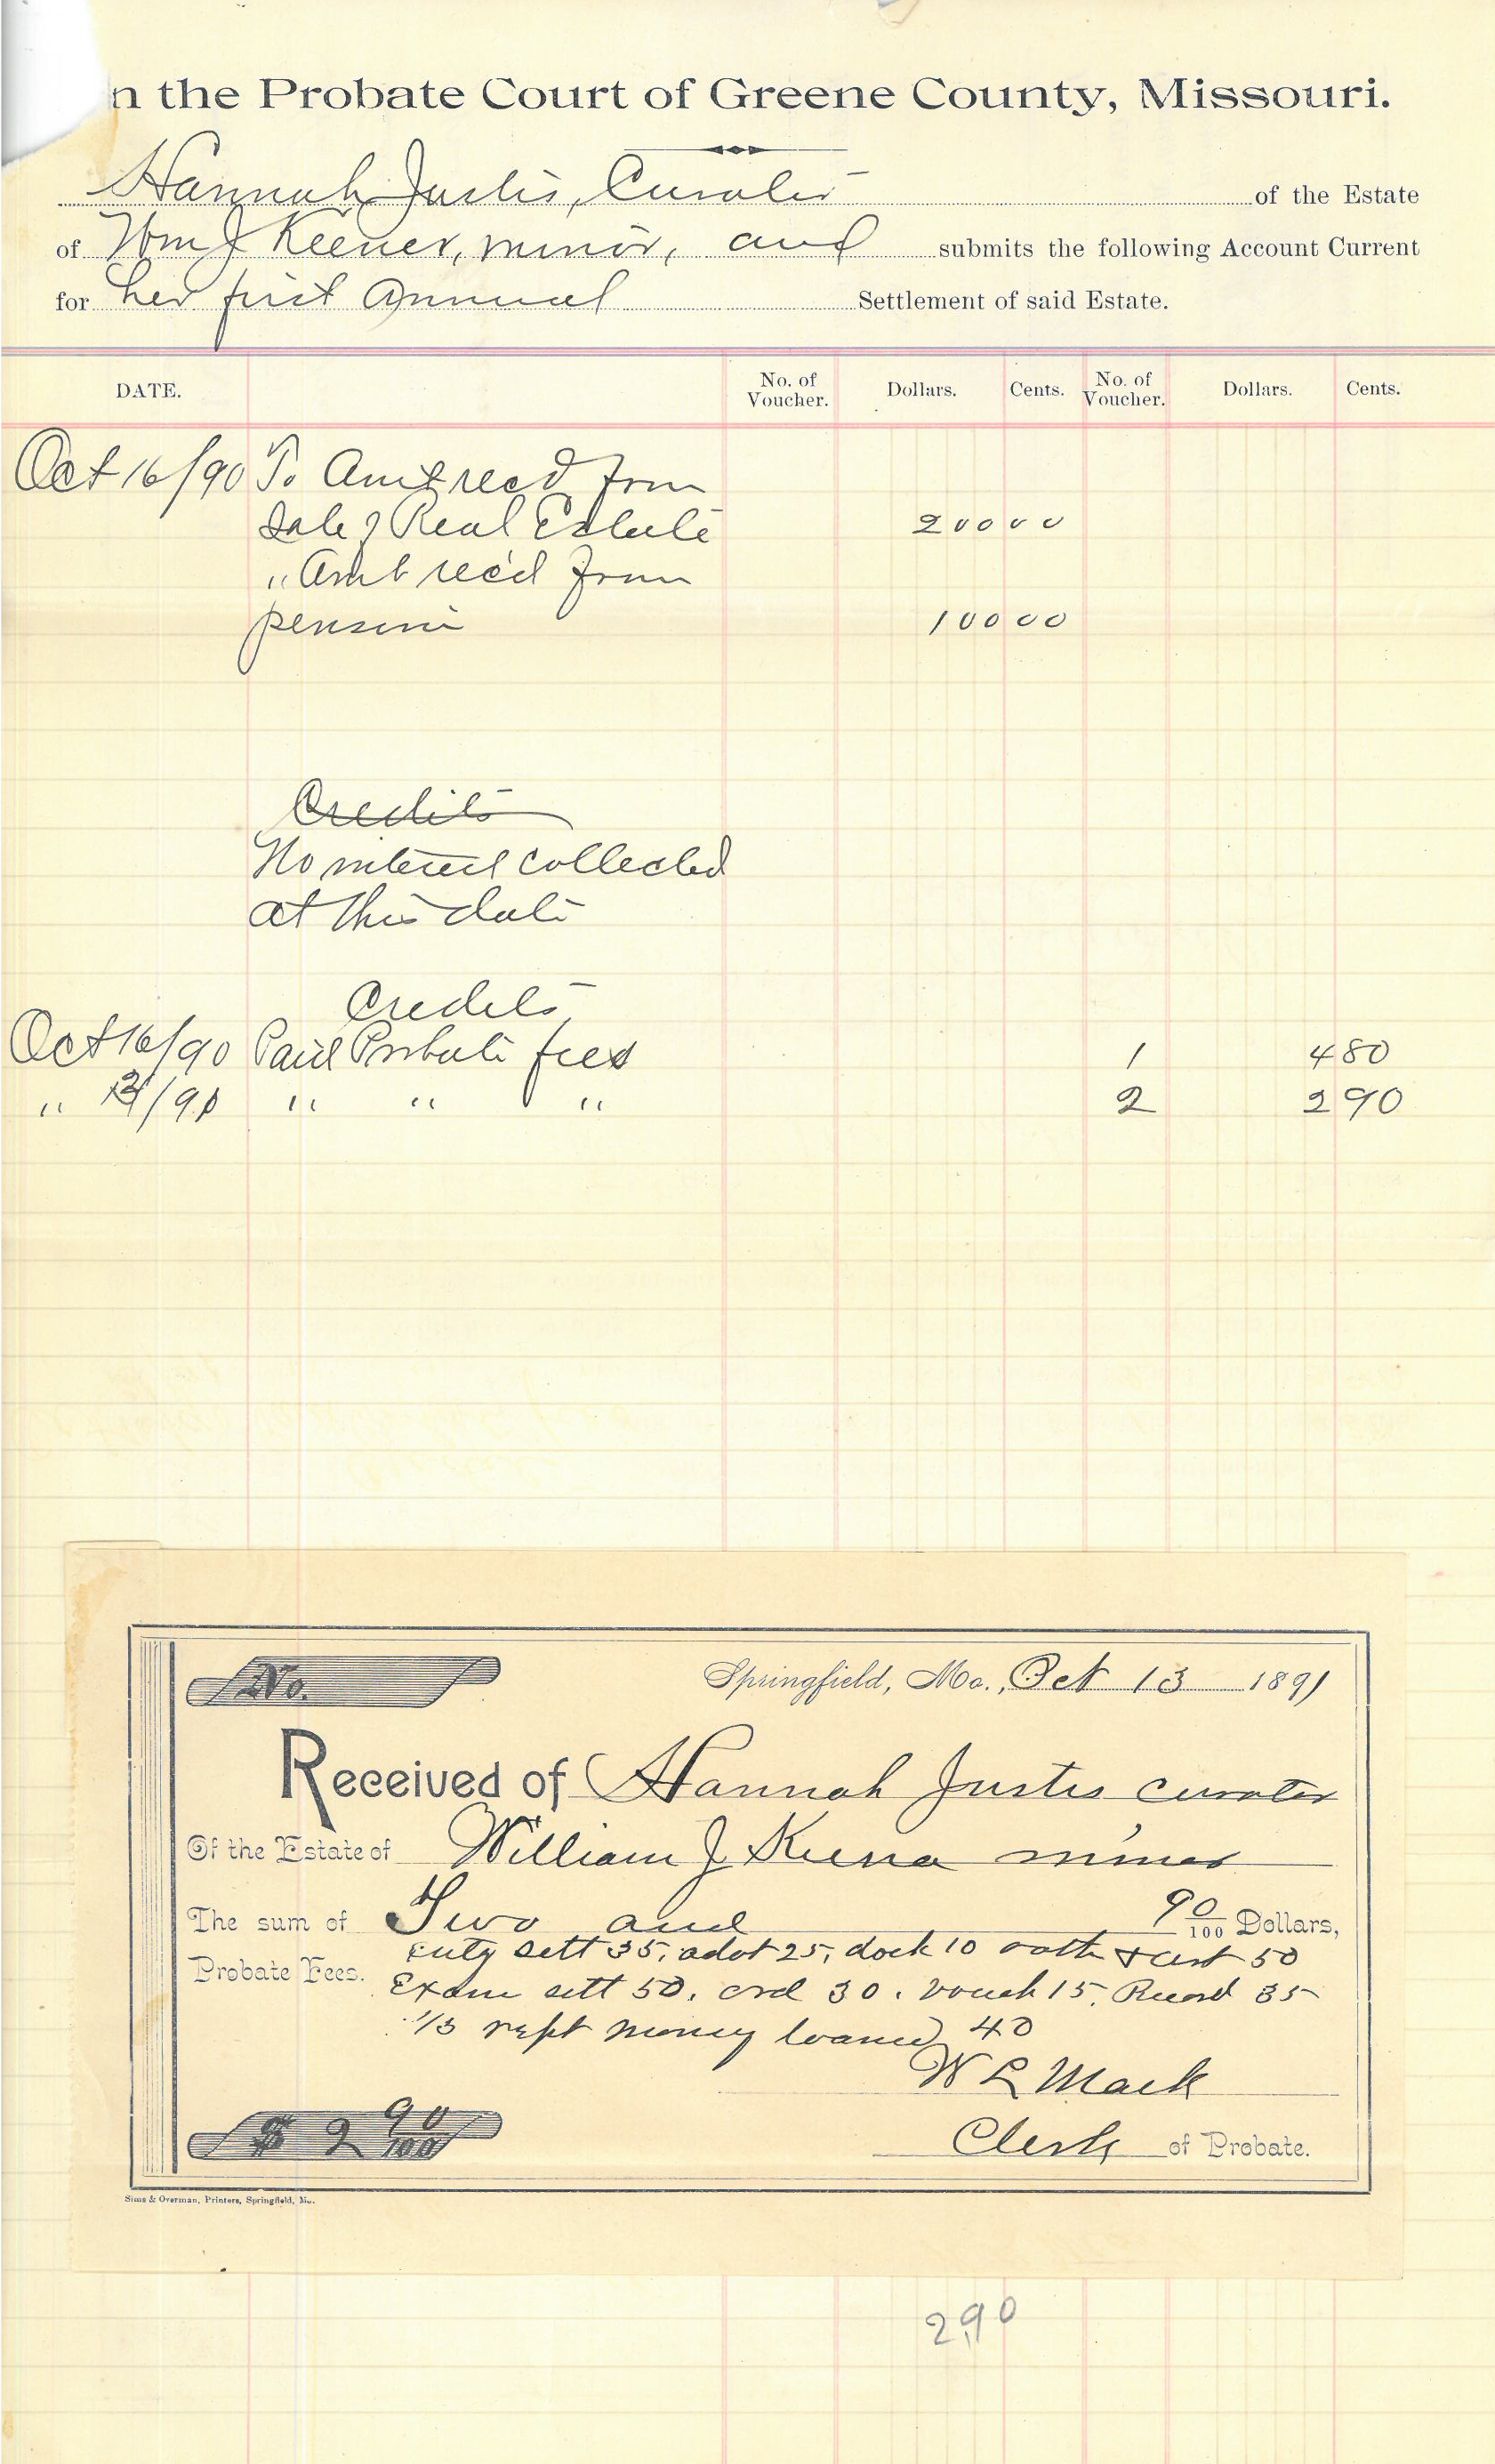 n the Probate Court of Greene County, Missouri.
Hannah Justis, Curator of the Estate
of Wm J Keener, minor, and submits the following Account Current
for her first Annual Settlement of said Estate.
DATE. No. of Voucher. Dollars. Cents. No. of Voucher. Dollars. Cents.
Oct 16/90 To Amt recd from
Sale of Real Estate 200 00
" Amt rec'd from
pension 100 00
Credits
No interest collected
at this date
Credits
Oct 16/90 Paid Probate fees 1 4 80
" 13/91 " " " 2 2 90
No. Springfield, Mo., Oct 13 1891
Received of Hannah Justis curator
Of the Estate of William J Keener minor
The sum of Two and 90/100 Dollars,
Probate Fees. entg sett 35, adot 25, dock 10 oath & cert 50
Exam sett 50. ord 30. vouch 15. Record 35
1/3 rept money loaned 40
W L Mack
$ 2 90/100 Clerk of Probate.
Sims & Overman, Printers, Springfield, Mo.
2,90